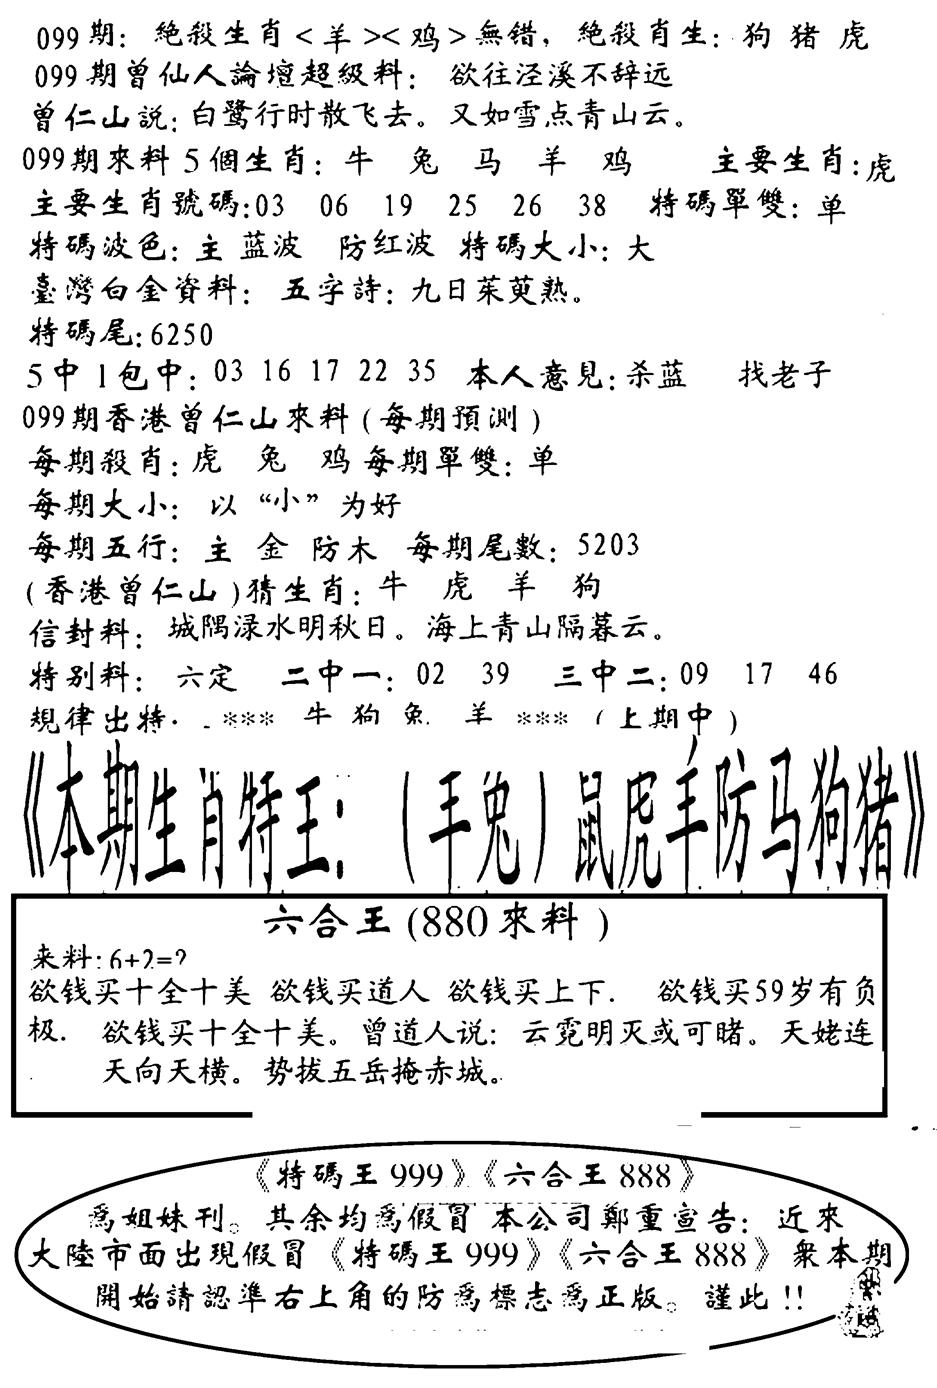 099期: 絶殺生肖<羊><鸡>無错，絶殺肖生: 狗 猪 虎
099期曾仙人論壇超級料: 欲往泾溪不辞远
曾仁山説: 白鹭行时散飞去。又如雪点青山云。
099期來料 5個生肖: 牛 兔 马 羊 鸡 主要生肖: 虎
主要生肖號碼: 03 06 19 25 26 38 特碼單雙: 单
特碼波色: 主 蓝波 防红波 特碼大小: 大
臺灣白金資料: 五字詩: 九日茱萸熟。
特碼尾: 6250
5中1包中: 03 16 17 22 35 本人意見: 杀蓝 找老子
099期香港曾仁山來料(每期預测)
每期殺肖: 虎 兔 鸡 每期單雙: 单
每期大小: 以“小”为好
每期五行: 主 金 防木 每期尾數: 5203
(香港曾仁山)猜生肖: 牛 虎 羊 狗
信封料: 城隅渌水明秋日。海上青山隔暮云。
特别料: 六定 二中一: 02 39 三中二: 09 17 46
規律出特. *** 牛 狗 兔 羊 *** (上期中)
《本期生肖特王:（羊兔）鼠虎羊防马狗猪》
六合王(880來料)
来料: 6+2=?
欲钱买十全十美 欲钱买道人 欲钱买上下. 欲钱买59岁有负
极. 欲钱买十全十美。曾道人说: 云霓明灭或可睹。天姥连
天向天横。势拔五岳掩赤城。
《特碼王999》《六合王888》
爲姐妹刊。其余均爲假冒 本公司鄭重宣告: 近來
大陸市面出現假冒《特碼王999》《六合王888》衆本期
開始請認準右上角的防爲標志爲正版。謹此!!